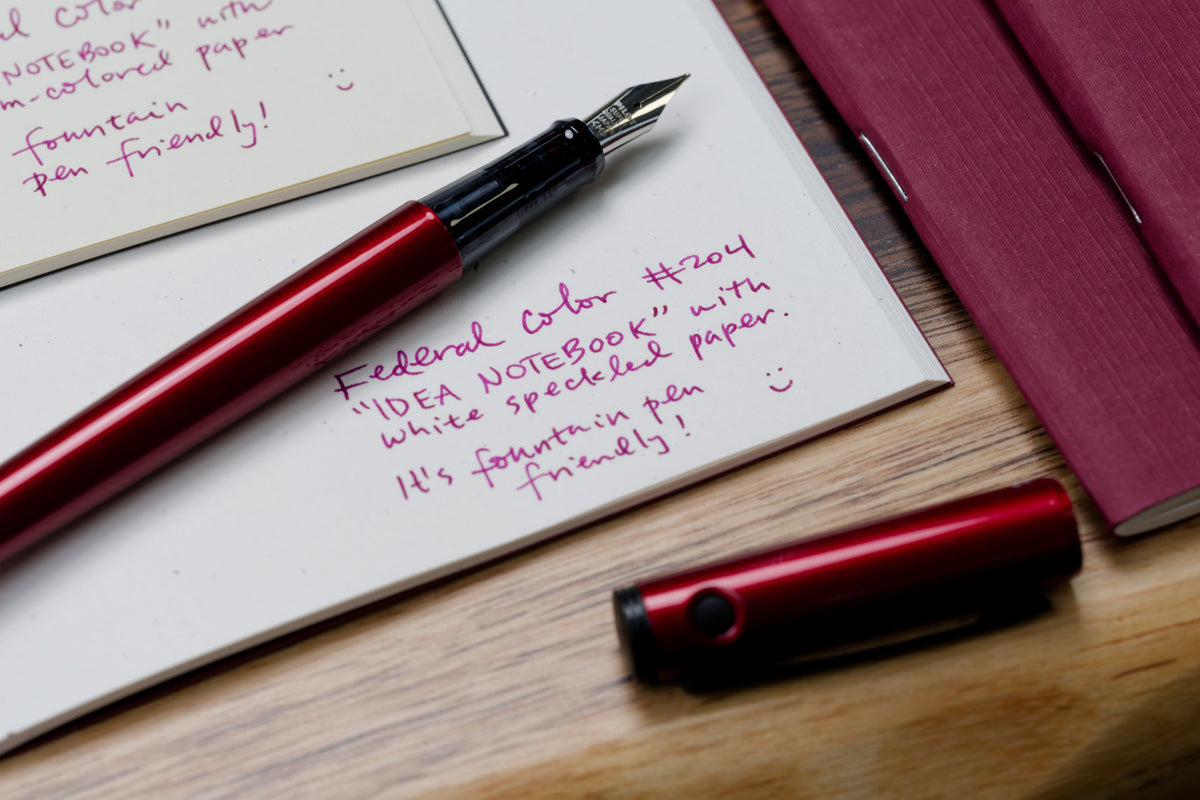 l color
NOTEBOOK" with
m-colored paper
fountain
pen friendly!
PILOT
SUPER
QUALITY
JAPAN
<M>
Federal Color #204
"IDEA NOTEBOOK" with
white speckled paper.
It's fountain pen
friendly!